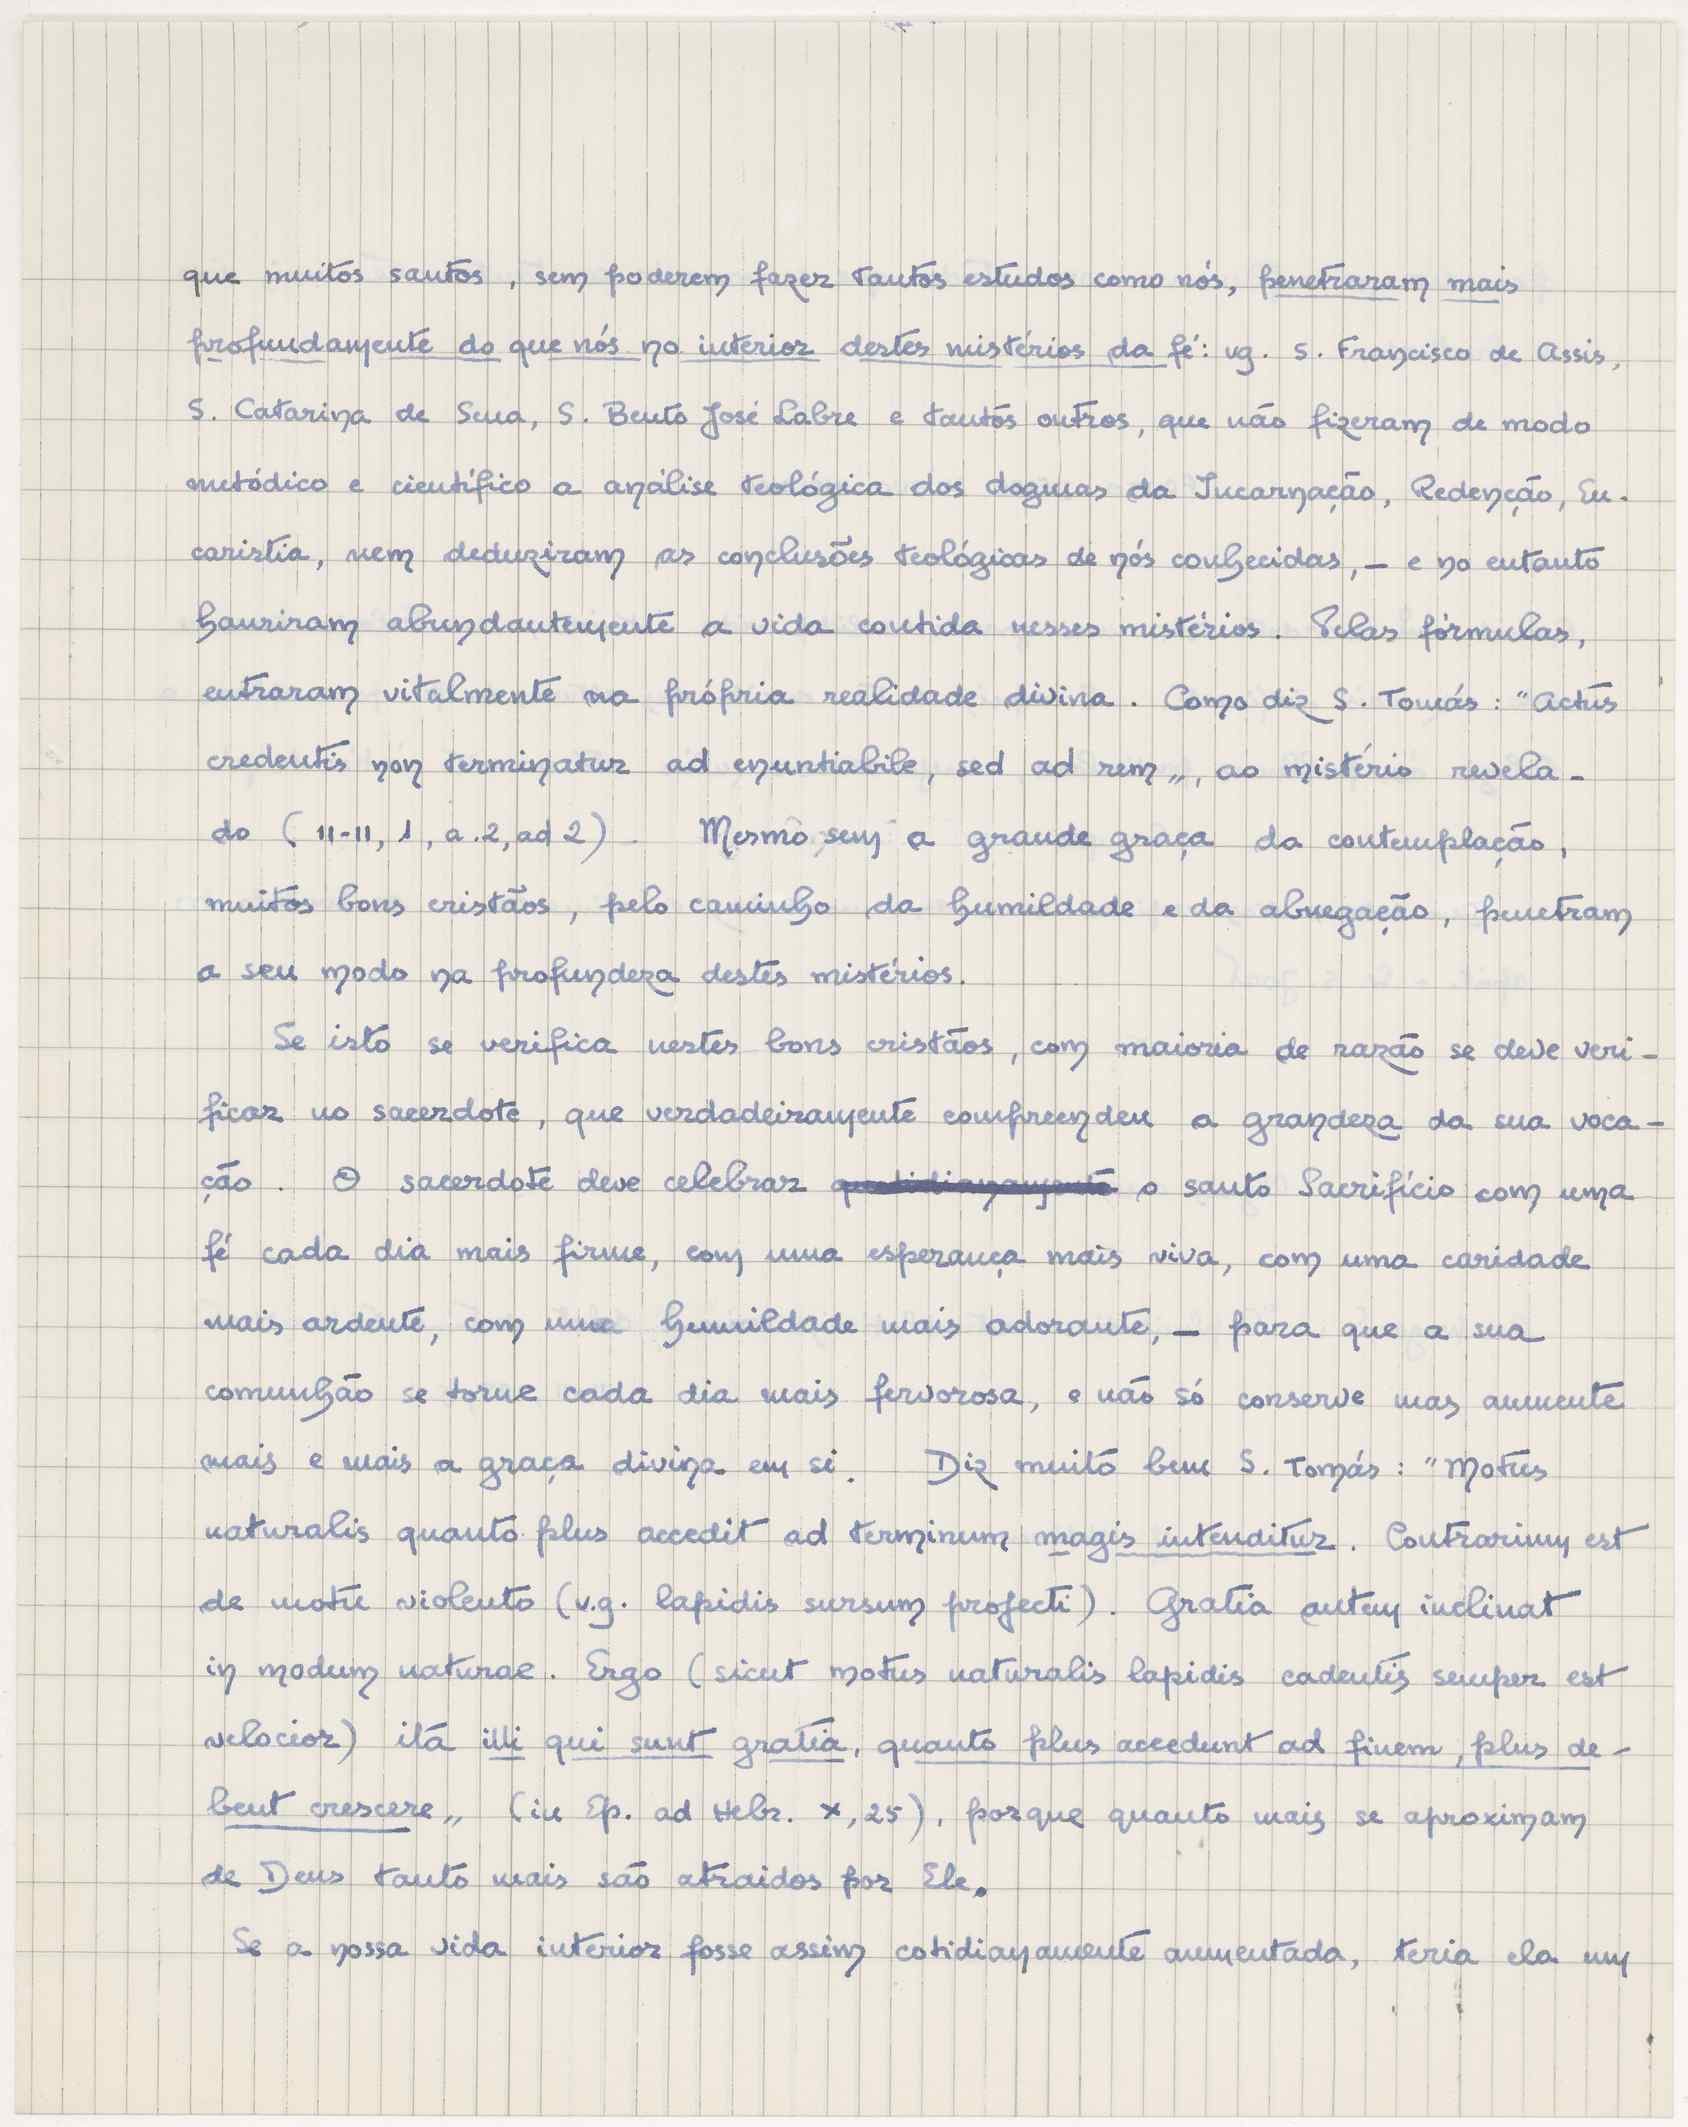 que muitos santos, sem poderem fazer tantos estudos como nós, penetraram mais
profundamente do que nós no interior destes mistérios da fé: vg. S. Francisco de Assis,
S. Catarina de Sena, S. Bento José Labre e tantos outros, que não fizeram de modo
metódico e científico a análise teológica dos dogmas da Incarnação, Redenção, Eu-
caristia, nem deduziram as conclusões teológicas de nós conhecidas, — e no entanto
hauriram abundantemente a vida contida nesses mistérios. Pelas fórmulas,
entraram vitalmente na própria realidade divina. Como diz S. Tomás: "Actus
credentis non terminatur ad enuntiabile, sed ad rem", ao mistério revela-
do (II-II, 1, a.2, ad 2). Mesmo sem a grande graça da contemplação,
muitos bons cristãos, pelo caminho da humildade e da abnegação, penetram
a seu modo na profundeza destes mistérios.
Se isto se verifica nestes bons cristãos, com maioria de razão se deve veri-
ficar no sacerdote, que verdadeiramente compreendeu a grandeza da sua voca-
ção. O sacerdote deve celebrar quotidianamente o santo Sacrifício com uma
fé cada dia mais firme, com uma esperança mais viva, com uma caridade
mais ardente, com uma humildade mais adorante, — para que a sua
comunhão se torne cada dia mais fervorosa, e não só conserve mas aumente
mais e mais a graça divina em si. Diz muito bem S. Tomás: "Motus
naturalis quanto plus accedit ad terminum magis intenditur. Contrarium est
de motu violento (v.g. lapidis sursum projecti). Gratia autem inclinat
in modum naturae. Ergo (sicut motus naturalis lapidis cadentis semper est
velocior) ita illi qui sunt gratia, quanto plus accedunt ad finem, plus de-
bent crescere" (in Ep. ad Hebr. X, 25), porque quanto mais se aproximam
de Deus tanto mais são atraidos por Ele.
Se a nossa vida interior fosse assim cotidianamente aumentada, teria ela um